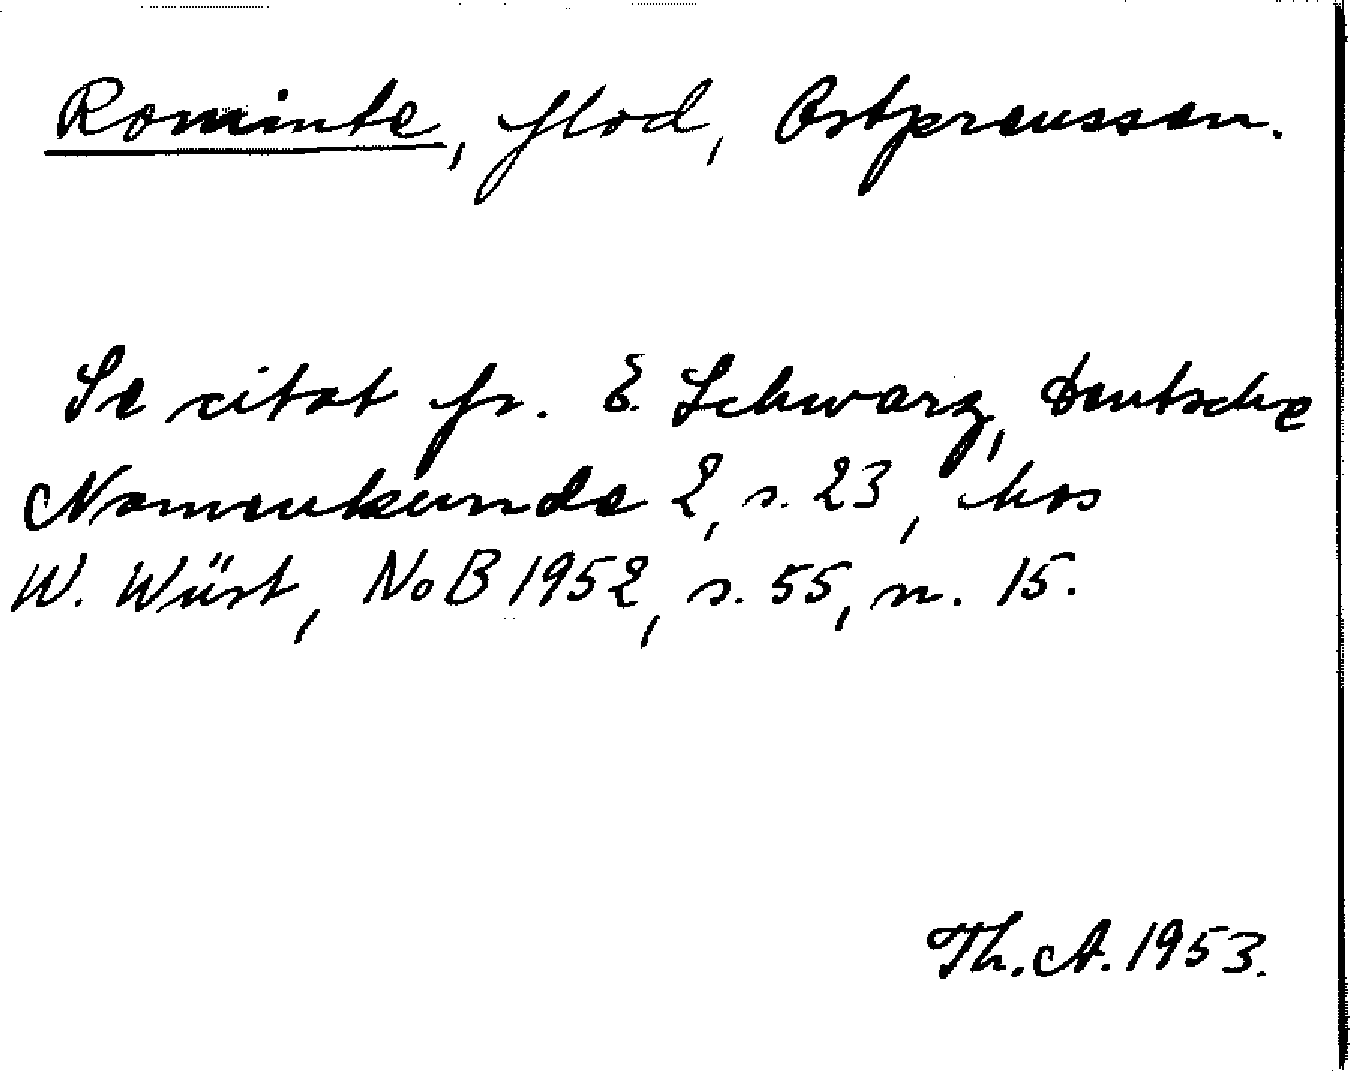 Rominte, flod, Ostpreussen.
Se citat fr. E. Schwarz, Deutsche
Namenkunde 2, s. 23, hos
W. Wüst, NoB 1952, s. 55, n. 15.
Th. A. 1953.